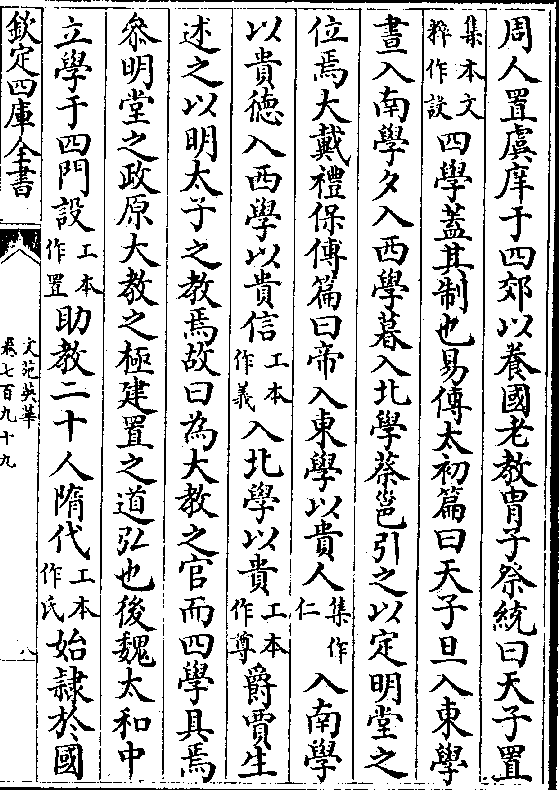 周人置虞庠于四郊以養國老教胄子祭統曰天子置
集本文粹作設四學蓋其制也易傳太初篇曰天子旦入東學
晝入南學夕入西學暮入北學蔡邕引之以定明堂之
位焉大戴禮保傅篇曰帝入東學以貴人集作仁入南學
以貴德入西學以貴信工本作義入北學以貴工本作尊爵賈生
述之以明太子之教焉故曰為大教之官而四學具焉
叅明堂之政原大教之極建置之道弘也後魏太和中
立學于四門設工本作置助教二十人隋代工本作氏始隷於國
欽定四庫全書
文苑英華
卷七百九十九
八